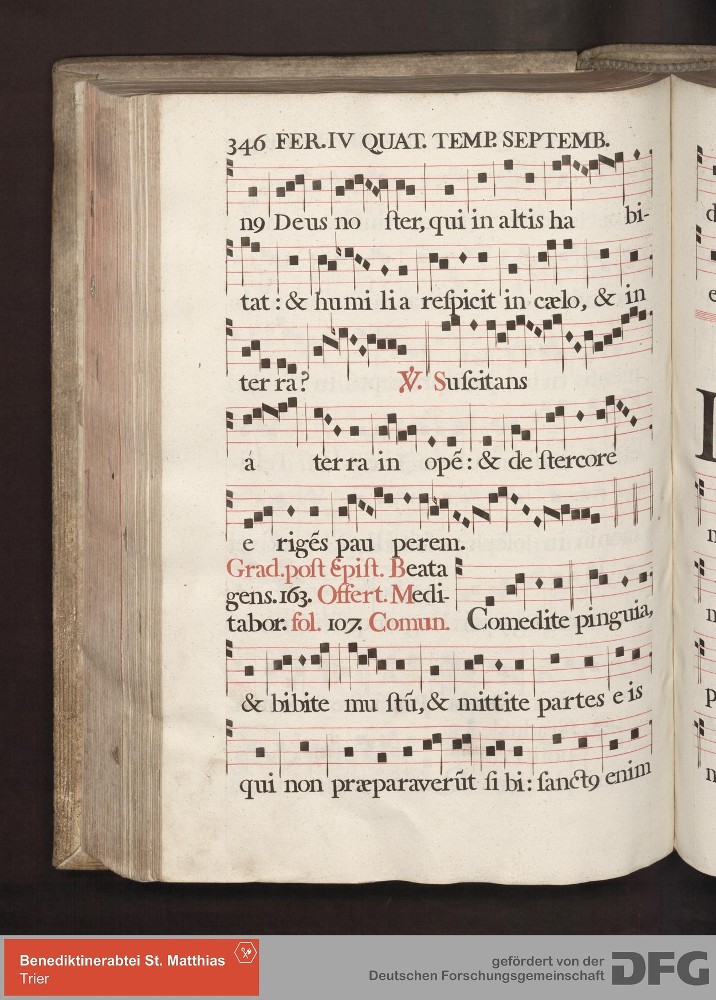 346 FER.IV QUAT. TEMP. SEPTEMB.
n9 Deus no ster, qui in altis ha bi-
tat : & humi lia respicit in cælo, & in
ter ra? ℣. Suscitans
á terra in opẽ : & de stercore
e rigẽs pau perem.
Grad. post Epist. Beata
gens. 163. Offert. Medi-
tabor. fol. 107. Comun. Comedite pinguia,
& bibite mu stũ, & mittite partes e is
qui non præparaverũt si bi : sanct9 enim
Benediktinerabtei St. Matthias
Trier
gefördert von der
Deutschen Forschungsgemeinschaft DFG